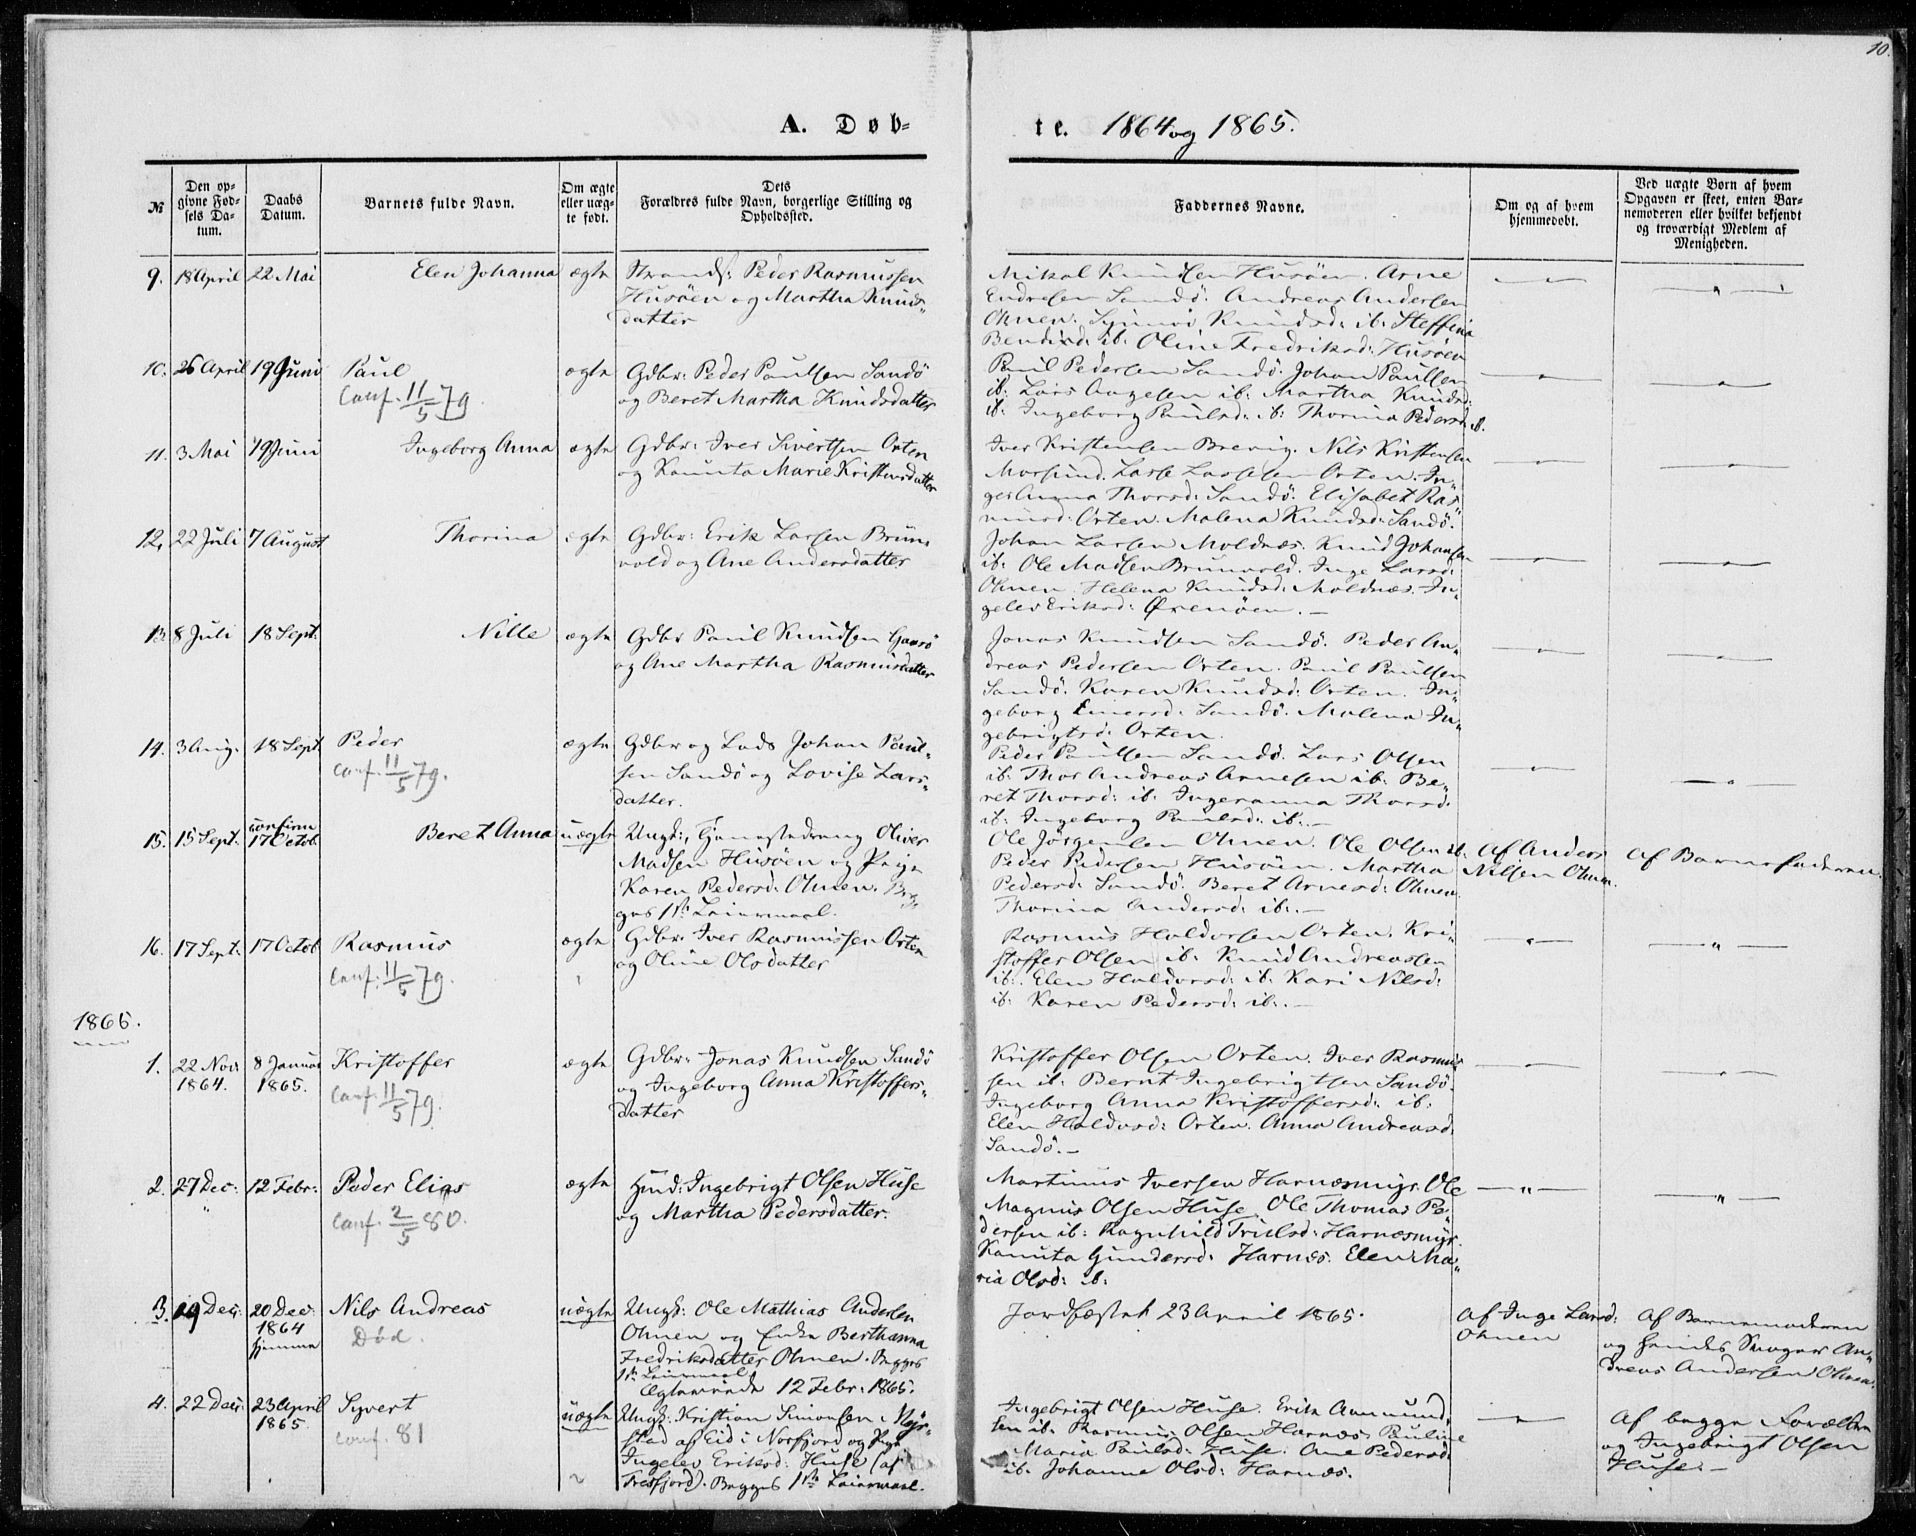 10.
A. Døb-
te. 1864 og 1865.
№
Den op-
givne Fød-
sels Da-
tum.
Daabs
Datum.
Barnets fulde Navn.
Om ægte
eller uæg-
te født.
Dets
Forældres fulde Navn, borgerlige Stilling og
Opholdssted.
Faddernes Navne.
Om og af hvem
hjemmedøbt.
Ved uægte Børn af hvem
Opgaven er skeet, enten Bar-
nemoderen eller hvilket bekjendt
og troværdigt Medlem af
Menigheden.
9. 18 April 22 Mai Elen Johanna ægte
Strands: Peder Rasmussen
Husöen og Martha Knuds-
datter
Mikal Knudsen Husöen. Arne
Endresen Sandö. Andreas Andersen
Ohnen. Synnövi Knudsd: ib: Steffina
Bendisd: ib: Oline Fredriksd: Husöen
10. 26 April 19 Juni Paul ægte
Conf. 11/5 79.
Gdbr: Peder Paulsen Sandö
og Beret Martha Knudsdatter
Paul Pedersen Sandö. Johan Paulsen
ib: Lars Aagesen ib: Martha Knudsd:
ib: Ingeborg Paulsd: ib: Thorina Pedersd: ib.
11. 3 Mai 19 Juni Ingeborg Anna ægte
Gdbr: Iver Sivertsen Orten
og Kanuta Marie Kristensdatter
Iver Kristensen Brevig. Nils Kristensen
Morsund. Lasse Lassesen Orten. In-
ger Anna Thorsd: Sandö. Elisabet Ras-
musd: Orten. Malena Knudsd: Sandö.
12. 22 Juli 7 August Thorina ægte
Gdbr: Erik Larsen Brun-
vold og Ane Andersdatter
Johan Larsen Moldnæs. Knud Johansen
ib: Ole Madsen Brunvold. Inge Larsd:
Ohnen. Helena Knudsd: Moldnæs. In-
gelev Eriksd: Örenöen. –
13. 8 Juli 18 Sept: Nille ægte
Gdbr Paul Knudsen Gaasö
og Ane Martha Rasmusdatter
Jonas Knudsen Sandö. Peder An-
dreas Pedersen Orten. Paul Paulsen
Sandö. Karen Knudsd: Orten. In-
geborg Einersd: Sandö. Malena In-
gebrigtsd: Orten.
14. 3 Aug. 18 Sept Peder ægte
Conf. 11/5 79.
Gdbr og Lods Johan Paul-
sen Sandö og Lovise Lars-
datter.
Peder Paulsen Sandö. Lars Olsen
ib: Thor Andreas Arnesen ib: Be-
ret Thorsd: ib: Ingeranna Thorsd:
ib: Ingeborg Paulsd: ib: –
15. 15 Sept: confirm 17 Octob. Beret Anna uægte
Ungk:, Tjenestedreng Oliver
Madsen Husöen og Pige
Karen Pedersd: Ohnen. Beg-
ges 1ste Leiermaal.
Ole Jörgensen Ohnen. Ole Olsen ib.
Peder Pedersen Husöen. Martha
Pedersd: Sandö. Beret Arnesd: Ohnen
Thorina Andersd: ib: –
Af Anders
Nilsen Ohnen.
Af Barnefaderen.
16. 17 Sept: 17 Octob Rasmus ægte
Conf. 11/5 79.
Gdbr. Iver Rasmussen Orten
og Oline Olsdatter
Rasmus Haldorsen Orten. Kri-
stoffer Olsen ib: Knud Andreassen
ib: Elen Haldorsd: ib: Kari Nilsd:
ib: Karen Pedersd: ib: –
1865.
1. 22 Nov: 1864. 8 Januar 1865. Kristoffer ægte
Conf. 11/5 79.
Gdbr: Jonas Knudsen Sandö
og Ingeborg Anna Kristoffers-
datter
Kristoffer Olsen Orten. Iver Rasmus-
sen ib: Bernt Ingebrigtsen Sandö
Ingeborg Anna Kristoffersd: ib:
Elen Haldosd: Orten. Anna Andreasd:
Sandö. –
2. 27 Dec: 12 Febr: Peder Elias ægte
Conf. 2/5 80.
Hmd: Ingebrigt Olsen Huse
og Martha Pedersdatter.
Martinus Iversen Harnæsmyr. Ole
Magnus Olsen Huse. Ole Thomas Pe-
dersen ib: Ragnhild Trulsd: Harnæsmyr.
Kanuta Gundersd: Harnæs. Elen Ma-
ria Olsd: ib:
3. 19 Dec: 20 Dec: 1864 hjemme Nils Andreas uægte
Död.
Ungk: Ole Mathias Andersen
Ohnen og Enke Berthanna
Fredriksdatter Ohnen. Begges
1ste Leiermaal
Ægteviede 12 Febr: 1865.
Jordfæstet 23 April 1865.
Af Inge Larsd:
Ohnen
Af Barnemoderen
og hendes Svoger An-
dreas Andersen Ohnen.
4. 22 Dec: 23 April 1865. Syvert uægte
conf. 81
Ungk: Kristian Simonsen Myr-
stad af Eid i Norfjord og Pige
Ingelev Eriksd: Huse (af
Tresfjord). Begges 1ste Leiermaal.
Ingebrigt Olsen Huse. Erik Aamund-
sen ib. Rasmus Olsen Harnæs. Pauline
Maria Paulsd: Huse. Ane Pedersd:
ib. Johanne Olsd: Harnæs.
Af begge Forældre
og Ingebrigt Olsen
Huse. –